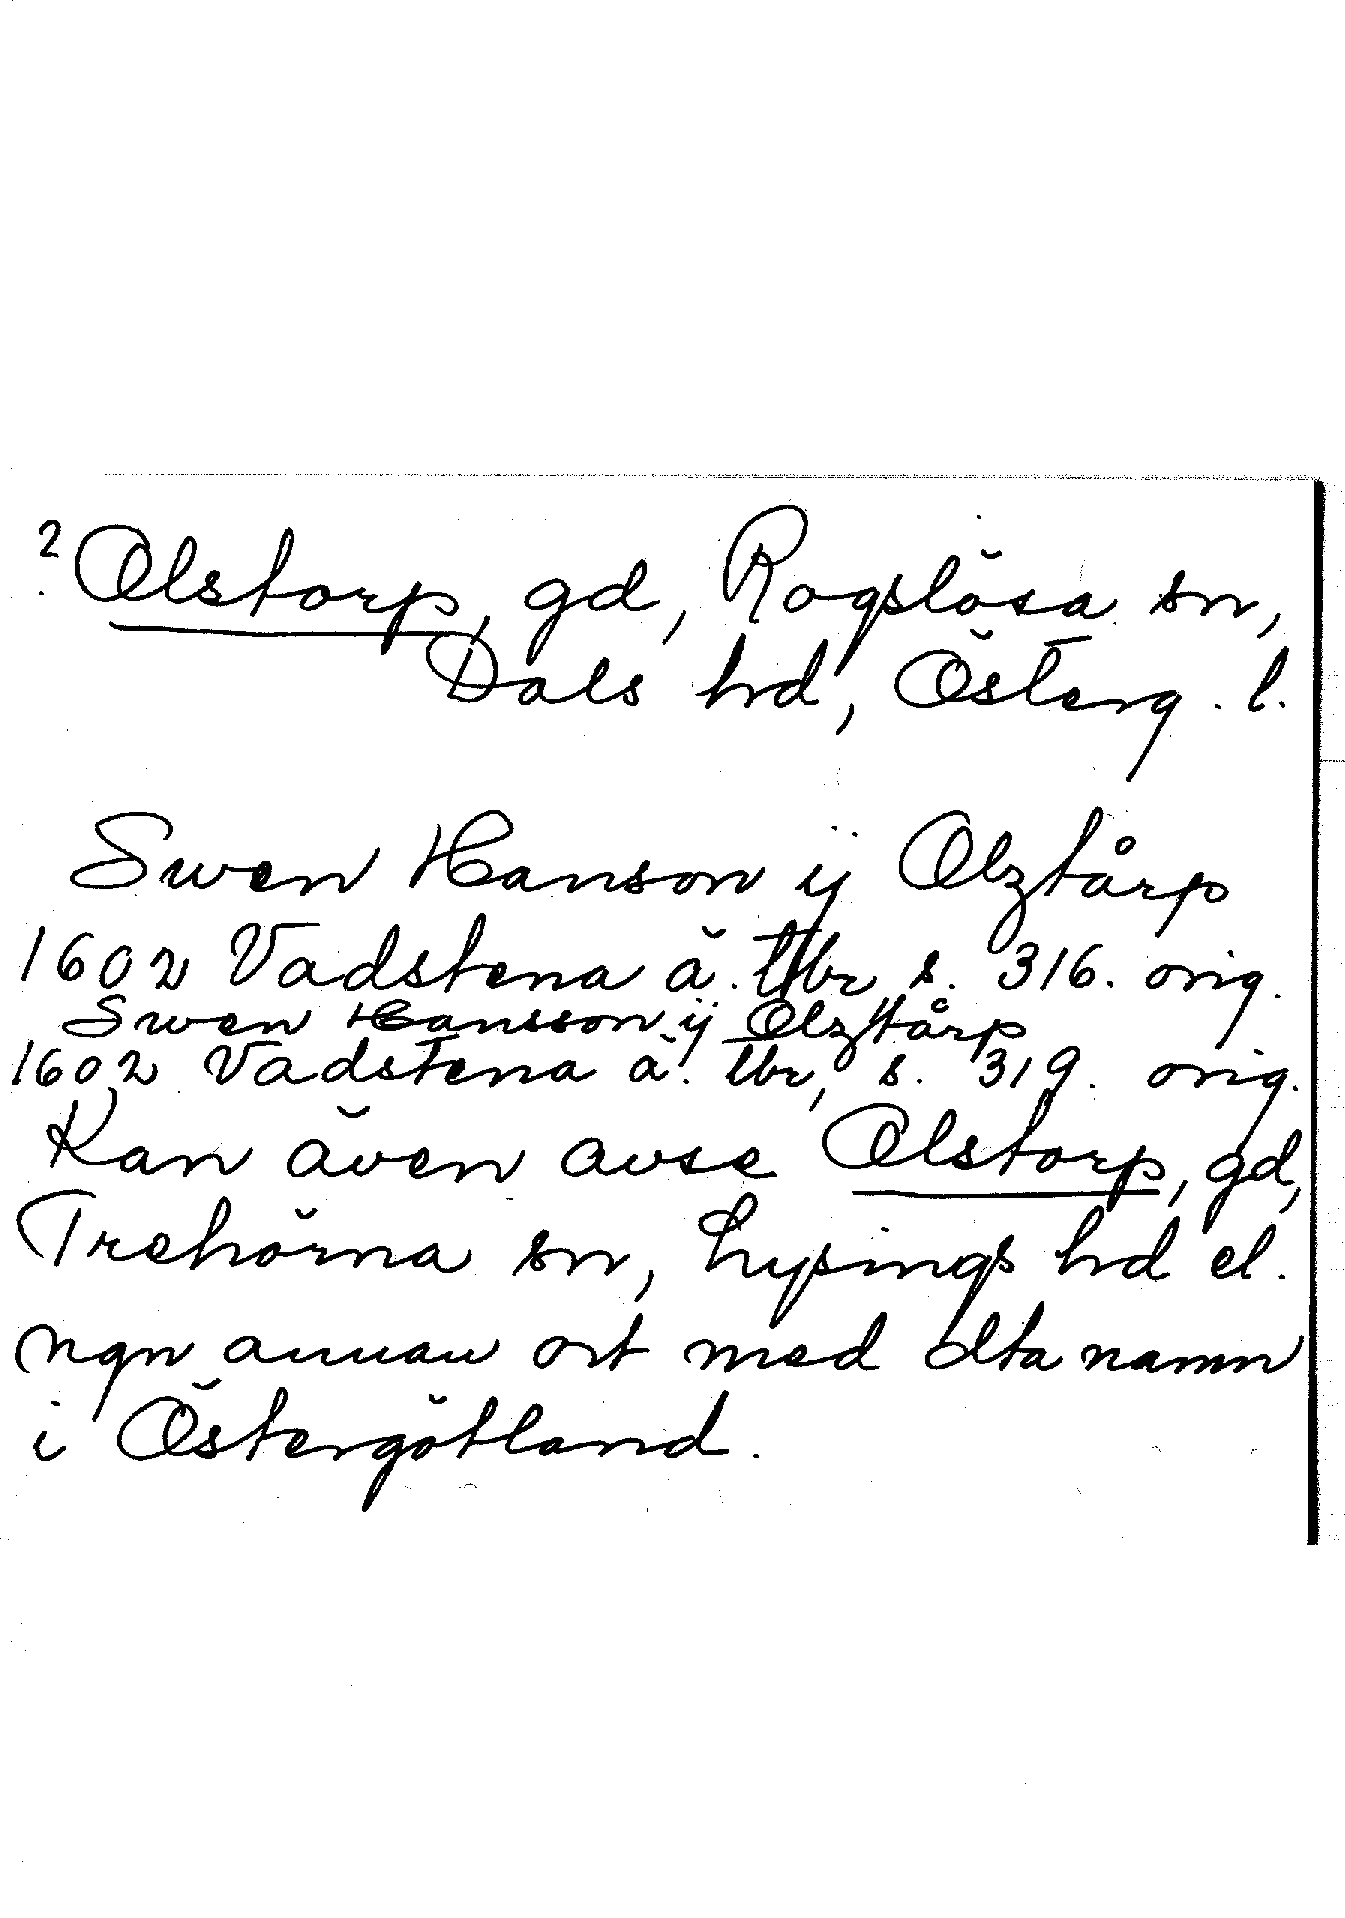 ? Olstorp, gd, Rogslösa sn,
Dals hd, Österg. l.
Swen Hanson ij Olztårp
1602 Vadstena ä. tbr s. 316. orig.
Swen Hansson ij Olztårp
1602 Vadstena ä. tbr, s. 319. orig.
Kan även avse Olstorp, gd,
Trehörna sn, Lysings hd el.
ngn annan ort med dta namn
i Östergötland.